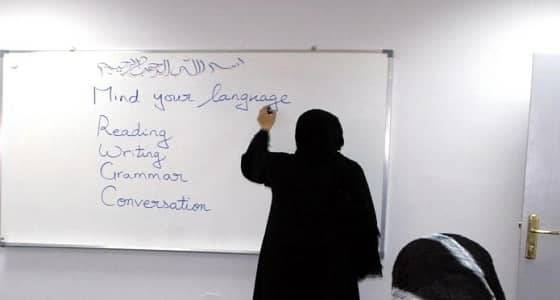 بسم الله الرحمن الرحيم
Mind your language
Reading
Writing
Grammar
Conversation